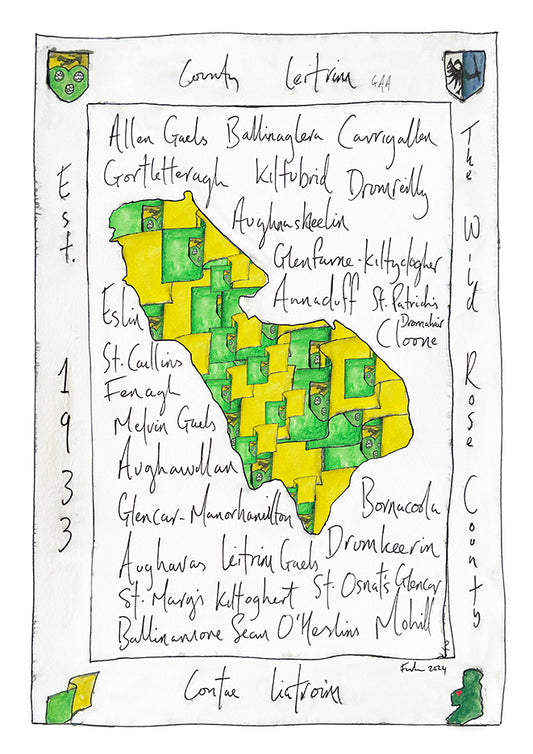 County Leitrim GAA
Est. 1933
The Wild Rose County
Allen Gaels Ballinaglera Carrigallen
Gortletteragh Kiltubrid Dromreilly
Aughnasheelin
Glenfarne-Kiltyclogher
Annaduff St. Patrick's
Dromahair
Eslin
Cloone
St. Caillins
Fenagh
Melvin Gaels
Aughawillan
Glencar-Manorhamilton Bornacoola
Aughavas Leitrim Gaels Drumkeerin
St. Mary's Kiltoghert St. Osnat's Glencar
Ballinamore Sean O'Heslins Mohill
2024
Contae Liatroim